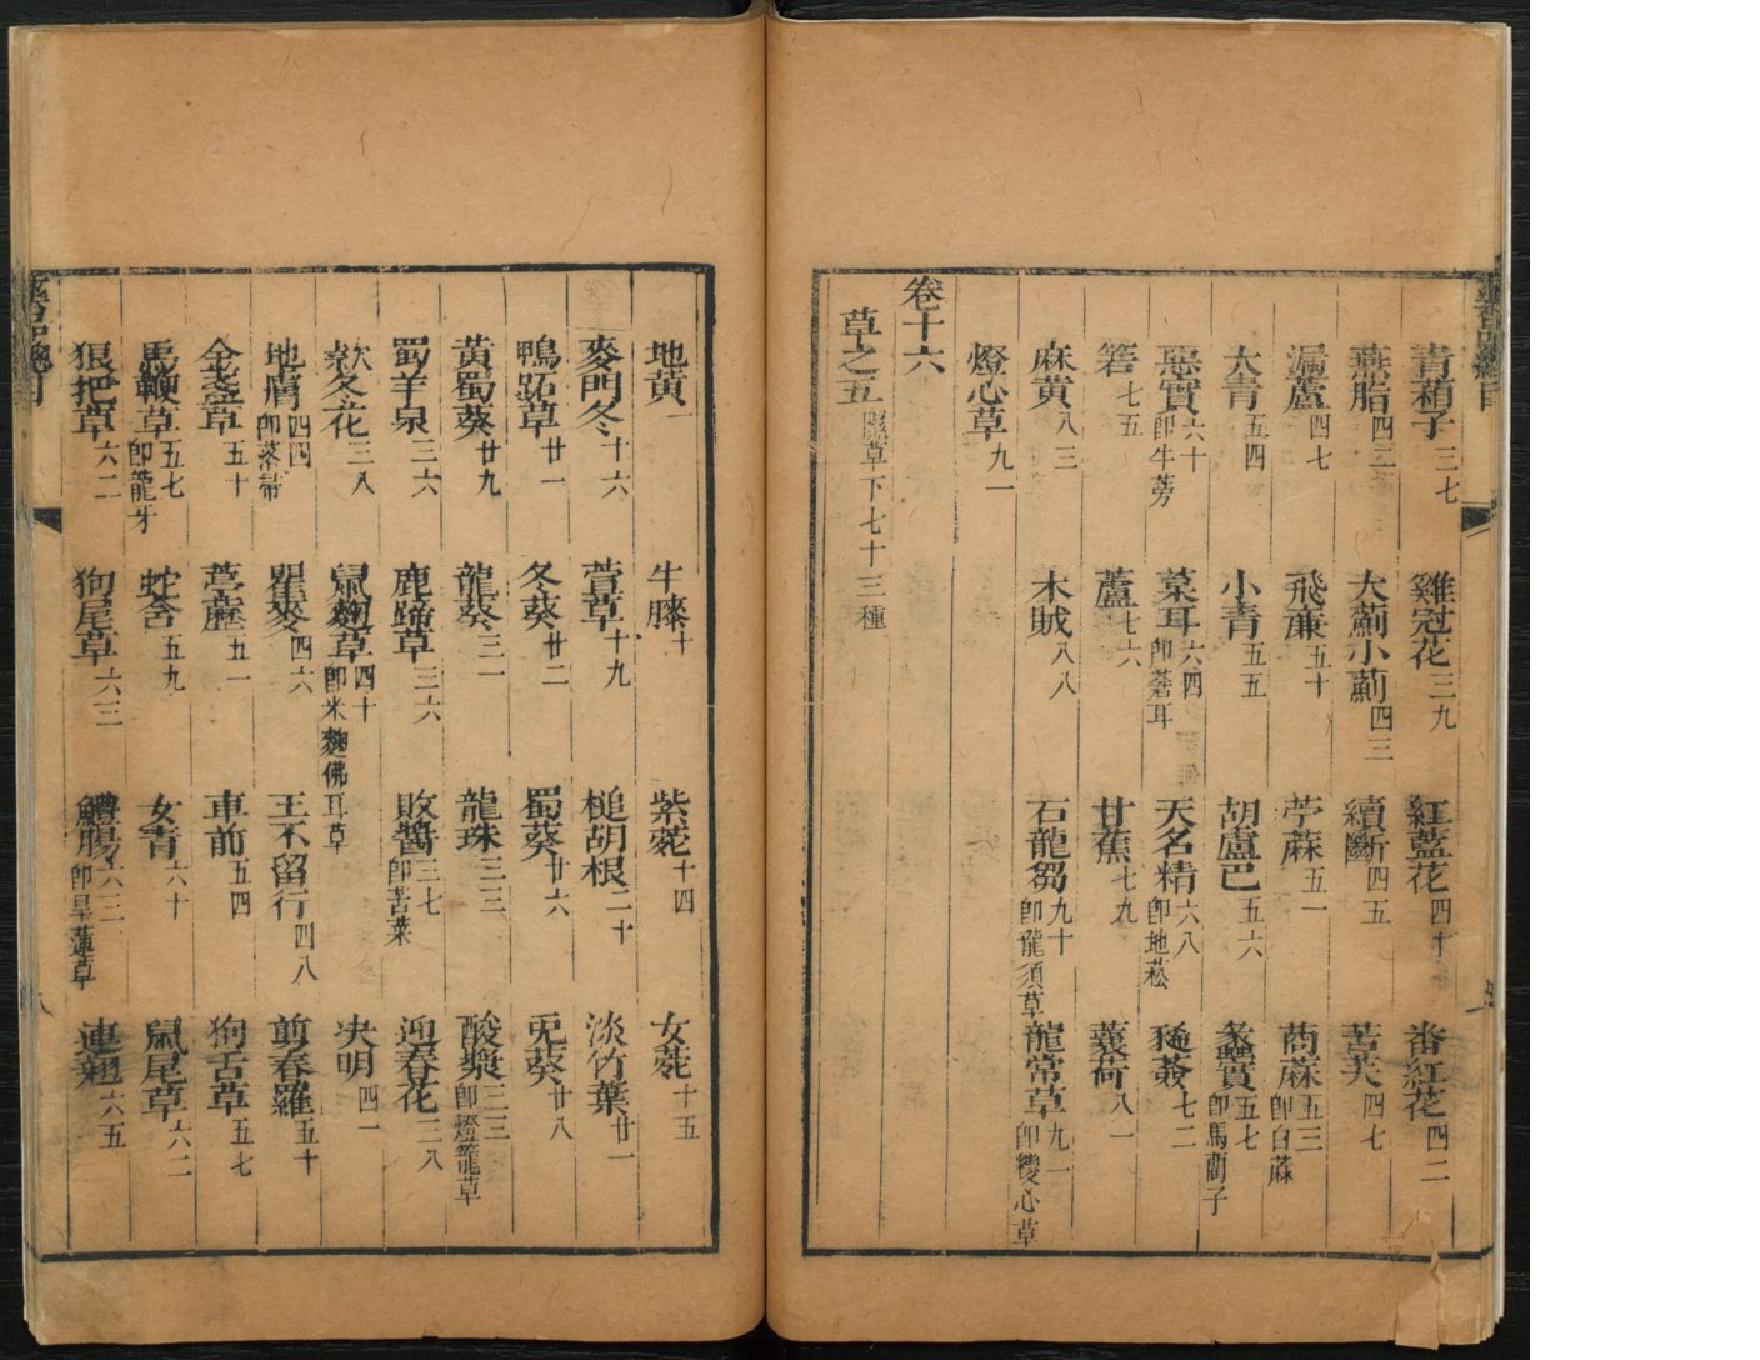 青葙子三七　雞冠花三九　紅藍花四十　番紅花四二
燕脂四二　大薊小薊四三　續斷四五　苦芺四七
漏蘆四七　飛廉五十　苧蔴五一　商蔴五三即白蔴
大青五四　小青五五　胡盧巴五六　蠡實五七即馬藺子
惡實六十即牛蒡　菜耳六四即蒼耳　天名精六八即地菘　豨薟七二
箬七五　蘆七六　甘蕉七九　蘘荷八一
麻黃八三　木賊八八　石龍芻九十即龍須草　龍常草九一即糉心草
燈心草九一
卷十六
草之五隰草下七十三種
地黃一　牛膝十　紫菀十四　女菀十五
麥門冬十六　萱草十九　槌胡根二十　淡竹葉廿一
鴨跖草廿一　冬葵廿二　蜀葵廿六　兎葵廿八
黃蜀葵廿九　龍葵三一　龍珠三三　酸漿三三即燈籠草
蜀羊泉三六　鹿蹄草三六　敗醬三七即苦菜　迎春花三八
欵冬花三八　鼠麴草四十即米麴佛耳草　決明四一
地膚四四即落帚　瞿麥四六　王不留行四八　剪春羅五十
金盞草五十　葶藶五一　車前五四　狗舌草五七
馬鞭草五七即龍牙　蛇含五九　女青六十　鼠尾草六二
狼把草六二　狗尾草六三　鱧腸六三即旱蓮草　連翹六五